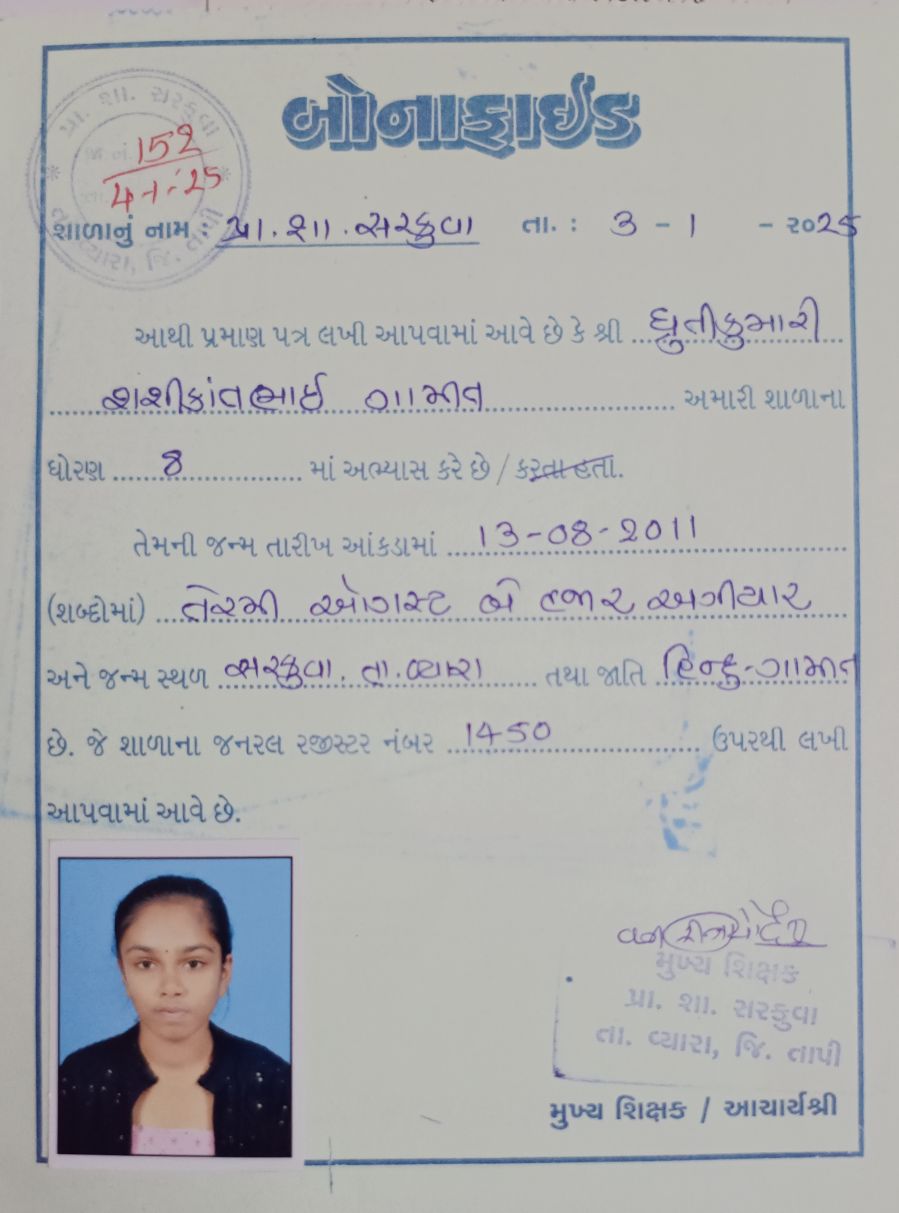 બોનાફાઈડ
પ્રા. શા. સરકુવા
જા. નં. 152
તા. 4-1-'25
તા. વ્યારા, જિ. તાપી
શાળાનું નામ : પ્રા. શા. સરકુવા તા. : 3 - 1 - ૨૦25
આથી પ્રમાણ પત્ર લખી આપવામાં આવે છે કે શ્રી ધ્રુતીકુમારી
શશીકાંતભાઈ ગામીત અમારી શાળાના
ધોરણ 8 માં અભ્યાસ કરે છે / કરતા હતા.
તેમની જન્મ તારીખ આંકડામાં 13-08-2011
(શબ્દોમાં) તેરમી ઓગસ્ટ બે હજાર અગીયાર
અને જન્મ સ્થળ સરકુવા. તા. વ્યારા તથા જાતિ હિન્દુ-ગામીત
છે. જે શાળાના જનરલ રજીસ્ટર નંબર 1450 ઉપરથી લખી
આપવામાં આવે છે.
મુખ્ય શિક્ષક
પ્રા. શા. સરકુવા
તા. વ્યારા, જિ. તાપી
મુખ્ય શિક્ષક / આચાર્યશ્રી